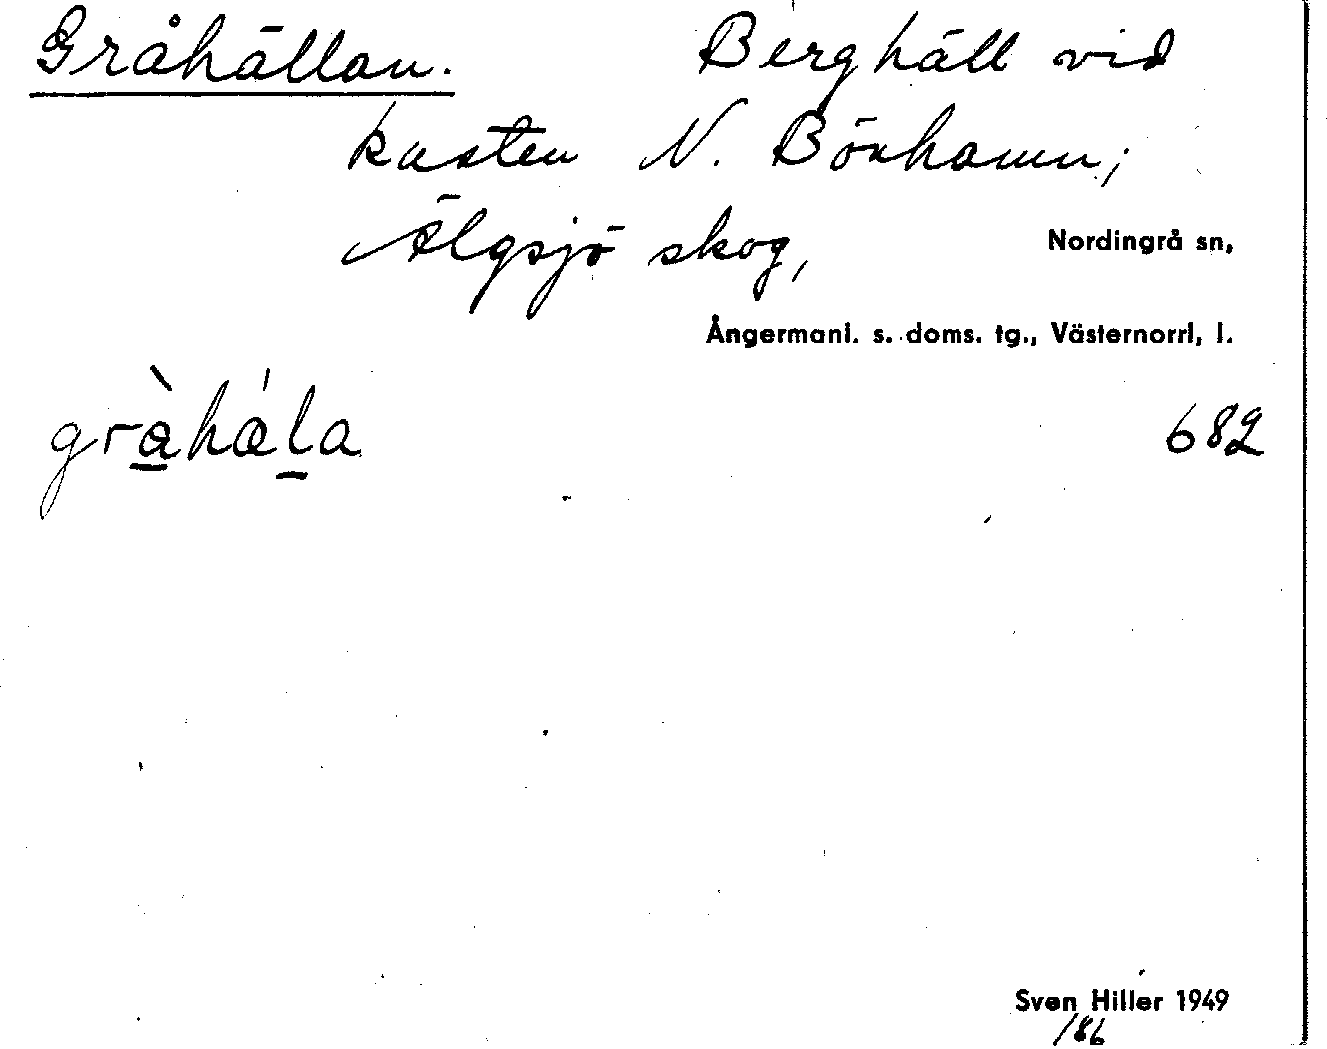 Gråhällan. Berghäll vid
kusten N. Bönhamn;
Älgsjö skog, Nordingrå sn,
Ångermanl. s. doms. tg., Västernorrl. l.
gràhála 682
Sven Hiller 1949
186